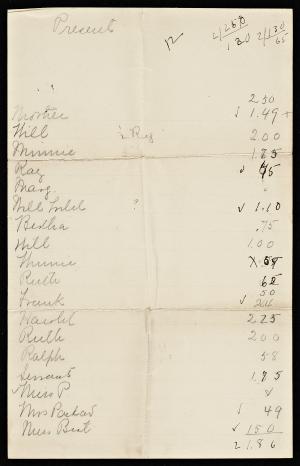 Present
12 2/260 2/130
130 65
2 50
Mother ✓ 1.49 +
Will 2 00
Minnie 1.75
Ray ✓ 45
Marg
Will ? ✓ 1.10
Bertha .75
Will 1.00
Minnie
Ruth
50
Frank ✓
Harold 2 25
Ruth 2 00
Ralph 58
Servant
✓ Miss P
Mrs ✓ 49
Miss ✓ 150
2 1.86